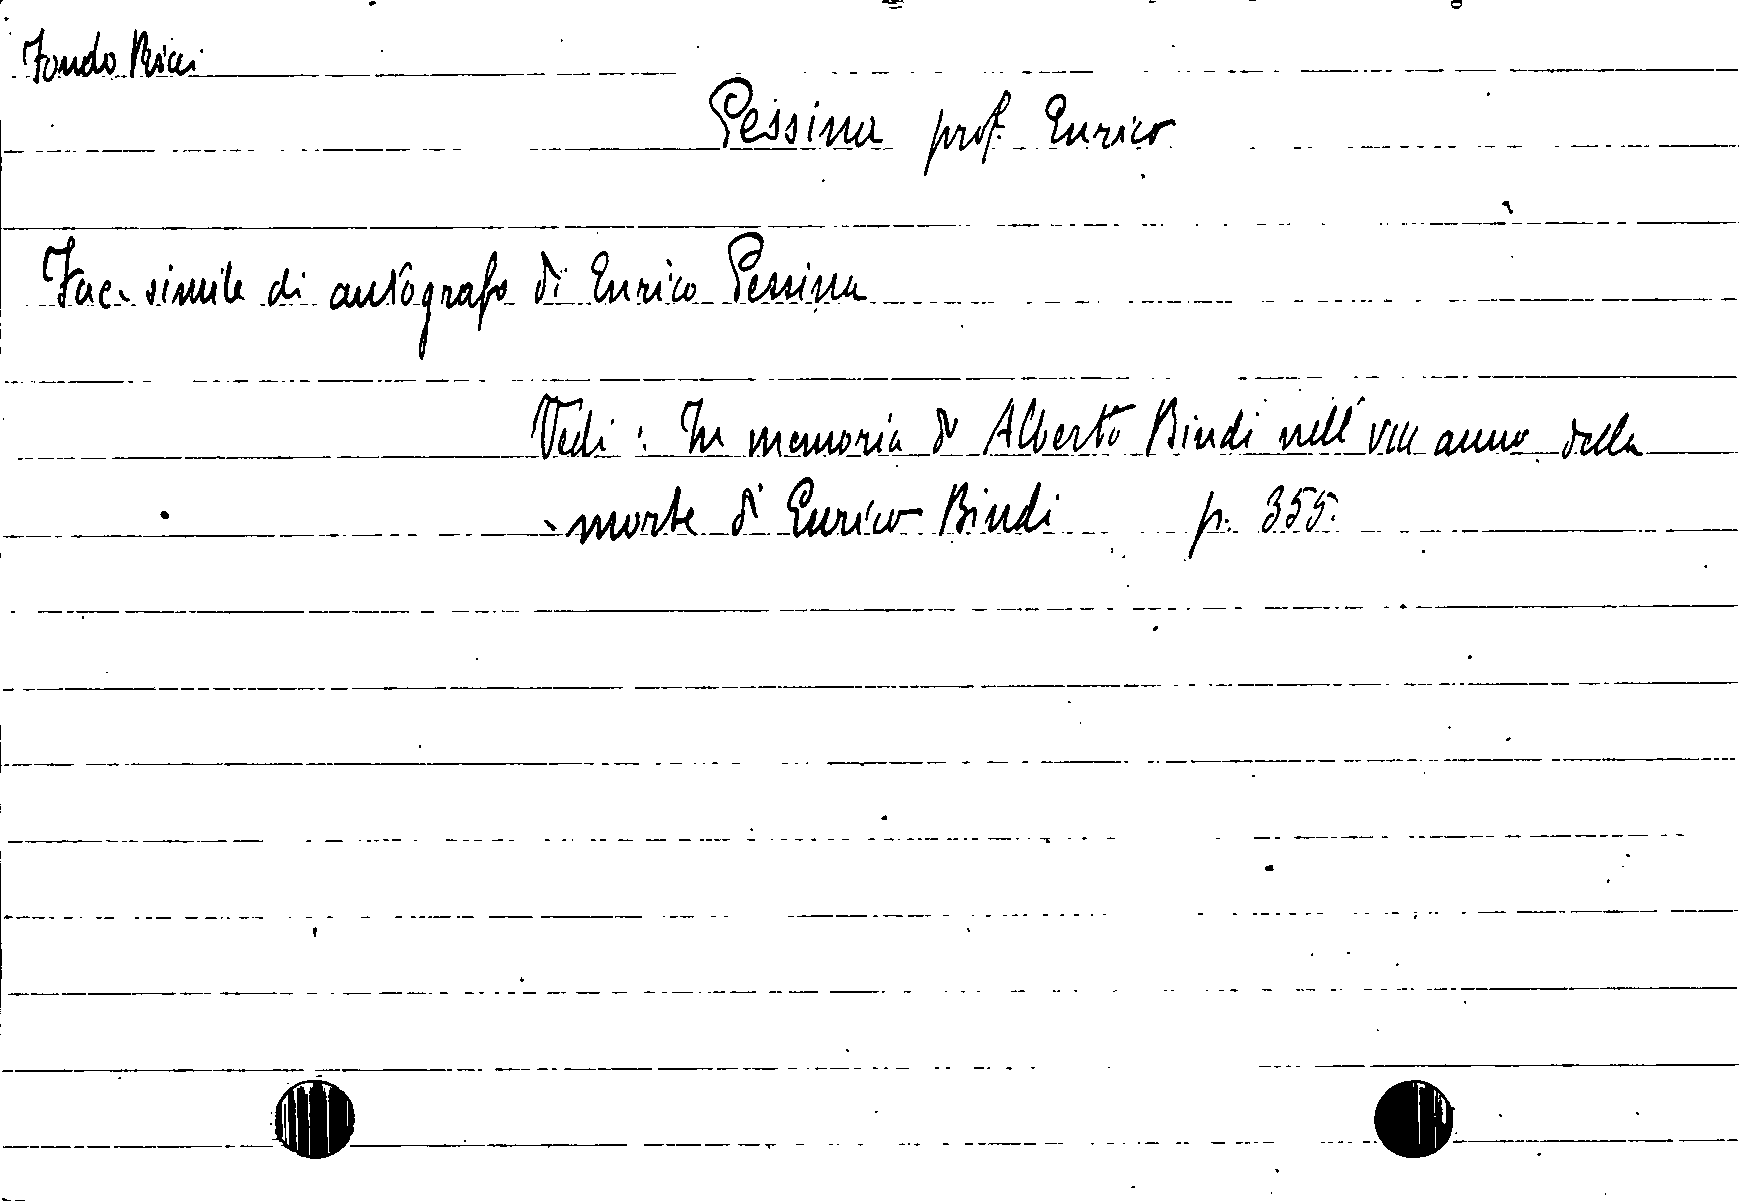 Fondo Ricci
Pessina prof. Enrico
Fac-simile di autografo di Enrico Pessina
Vedi: In memoria di Alberto Bindi nell'VIII anno della
morte di Enrico Bindi p. 355.